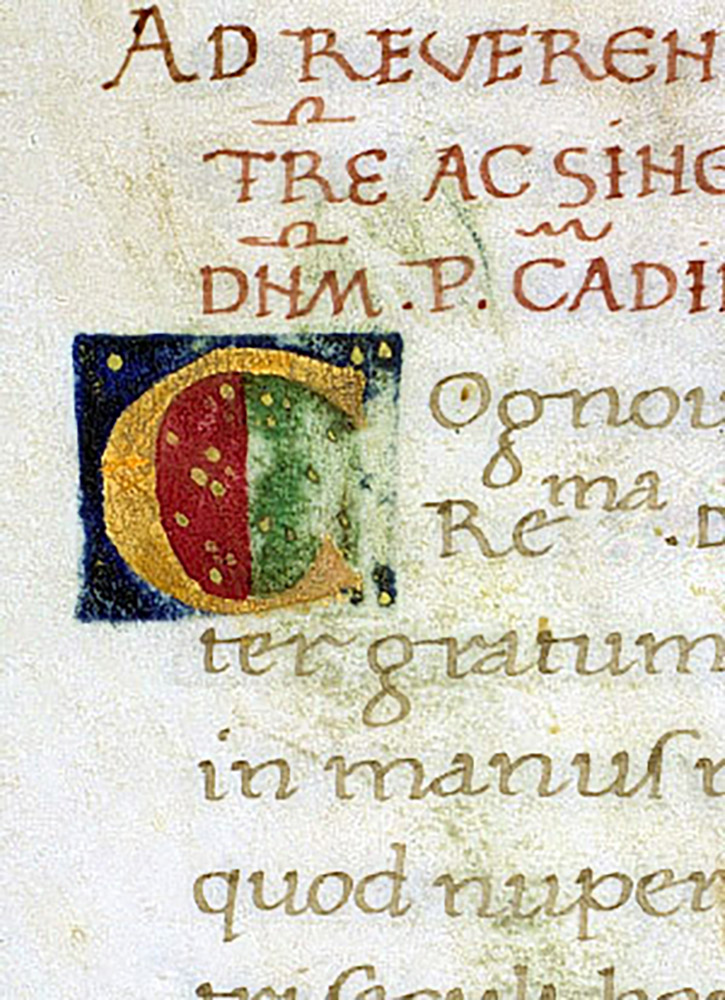 AD REVEREN
TRE AC SING
DNM. P. CADI
C Ognou
Re ma . D
ter gratum
in manuſ
quod nuper
tri ſeculi ho